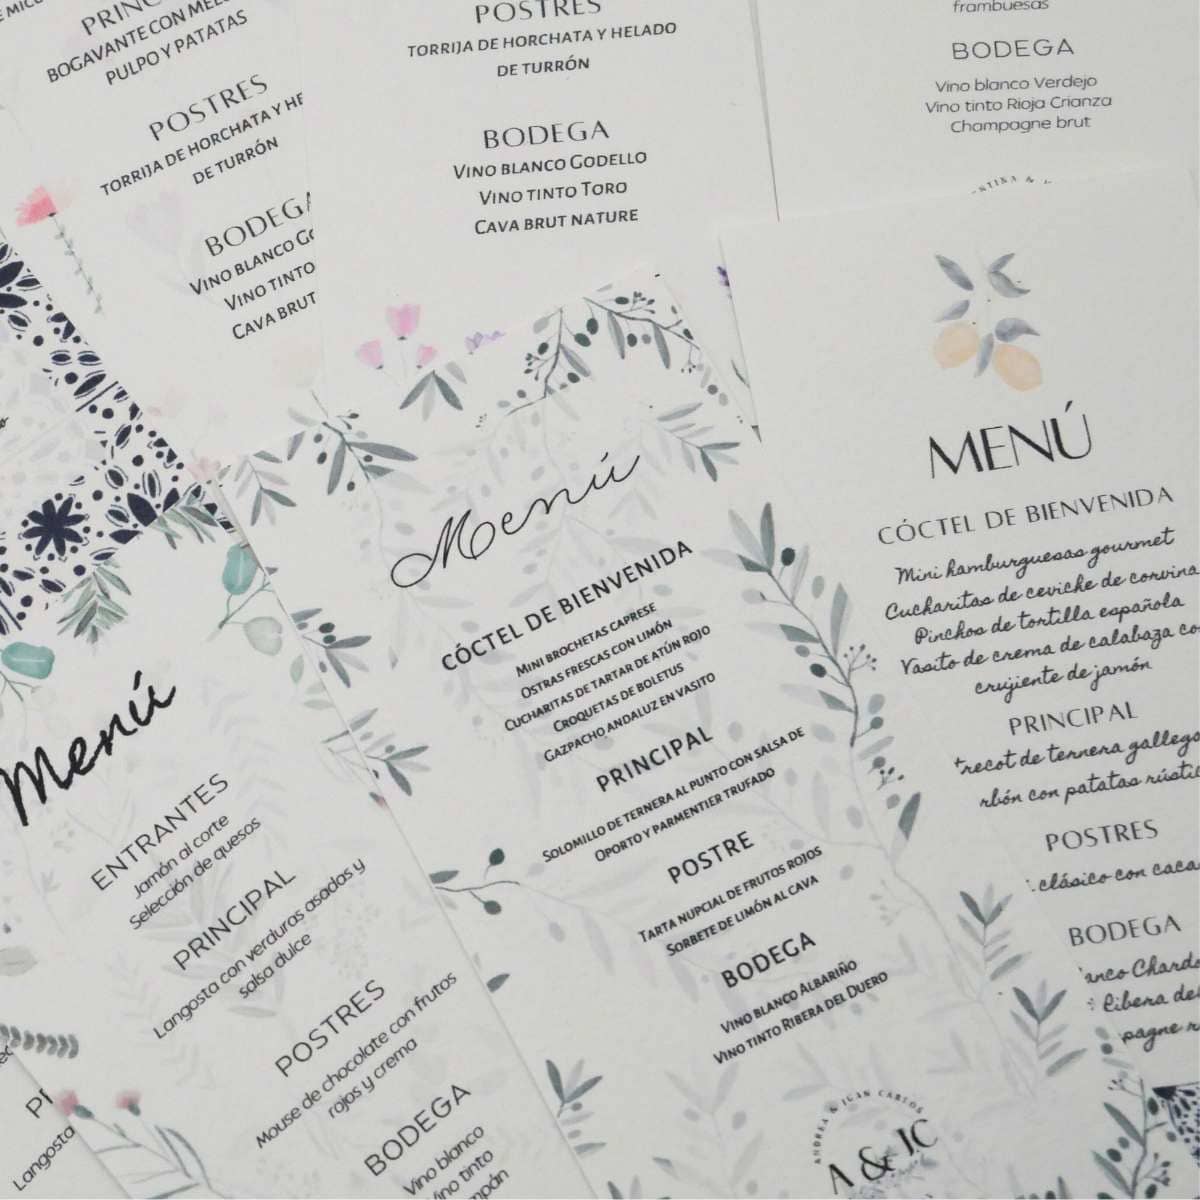 BOGAVANTE CON
PULPO Y PATATAS
POSTRES
TORRIJA DE HORCHATA Y
DE TURRÓN
BODEGA
VINO BLANCO
VINO TINTO
CAVA BRUT
POSTRES
TORRIJA DE HORCHATA Y HELADO
DE TURRÓN
BODEGA
VINO BLANCO GODELLO
VINO TINTO TORO
CAVA BRUT NATURE
frambuesas
BODEGA
Vino blanco Verdejo
Vino tinto Rioja Crianza
Champagne brut
Menú
ENTRANTES
Jamón al corte
Selección de quesos
PRINCIPAL
Langosta con verduras asadas y
salsa dulce
POSTRES
Mouse de chocolate con frutos
rojos y crema
BODEGA
Vino blanco
tinto
Langosta
Menú
CÓCTEL DE BIENVENIDA
MINI BROCHETAS CAPRESE
OSTRAS FRESCAS CON LIMÓN
CUCHARITAS DE TARTAR DE ATÚN ROJO
CROQUETAS DE BOLETUS
GAZPACHO ANDALUZ EN VASITO
PRINCIPAL
SOLOMILLO DE TERNERA AL PUNTO CON SALSA DE
OPORTO Y PARMENTIER TRUFADO
POSTRE
TARTA NUPCIAL DE FRUTOS ROJOS
SORBETE DE LIMÓN AL CAVA
BODEGA
VINO BLANCO ALBARIÑO
VINO TINTO RIBERA DEL DUERO
ANDREA & JUAN CARLOS
A & JC
MENÚ
CÓCTEL DE BIENVENIDA
Mini hamburguesas gourmet
Cucharitas de ceviche de corvina
Pinchos de tortilla española
Vasito de crema de calabaza
crujiente de jamón
PRINCIPAL
de ternera
con patatas
POSTRES
clásico con
BODEGA